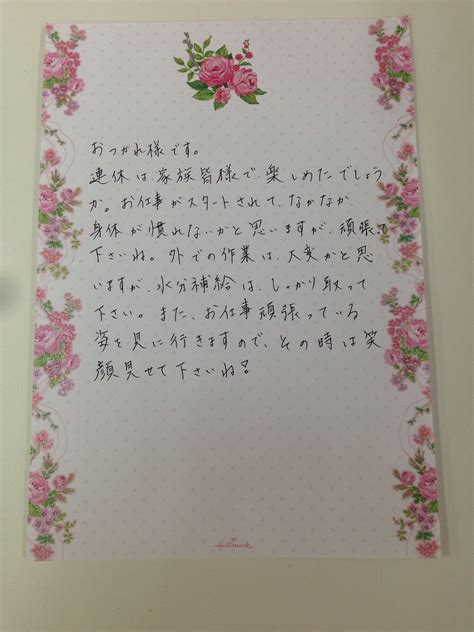 おつかれ様です。
連休は家族皆様で、楽しめたでしょう
か。お仕事がスタートされて、なかなか、
身体が慣れないかと思いますが、頑張って
下さいね。外での作業は、大変かと思
いますが、水分補給は、しっかり取って
下さい。また、お仕事頑張っている
姿を見に行きますので、その時は笑
顔見せて下さいね!
Hallmark